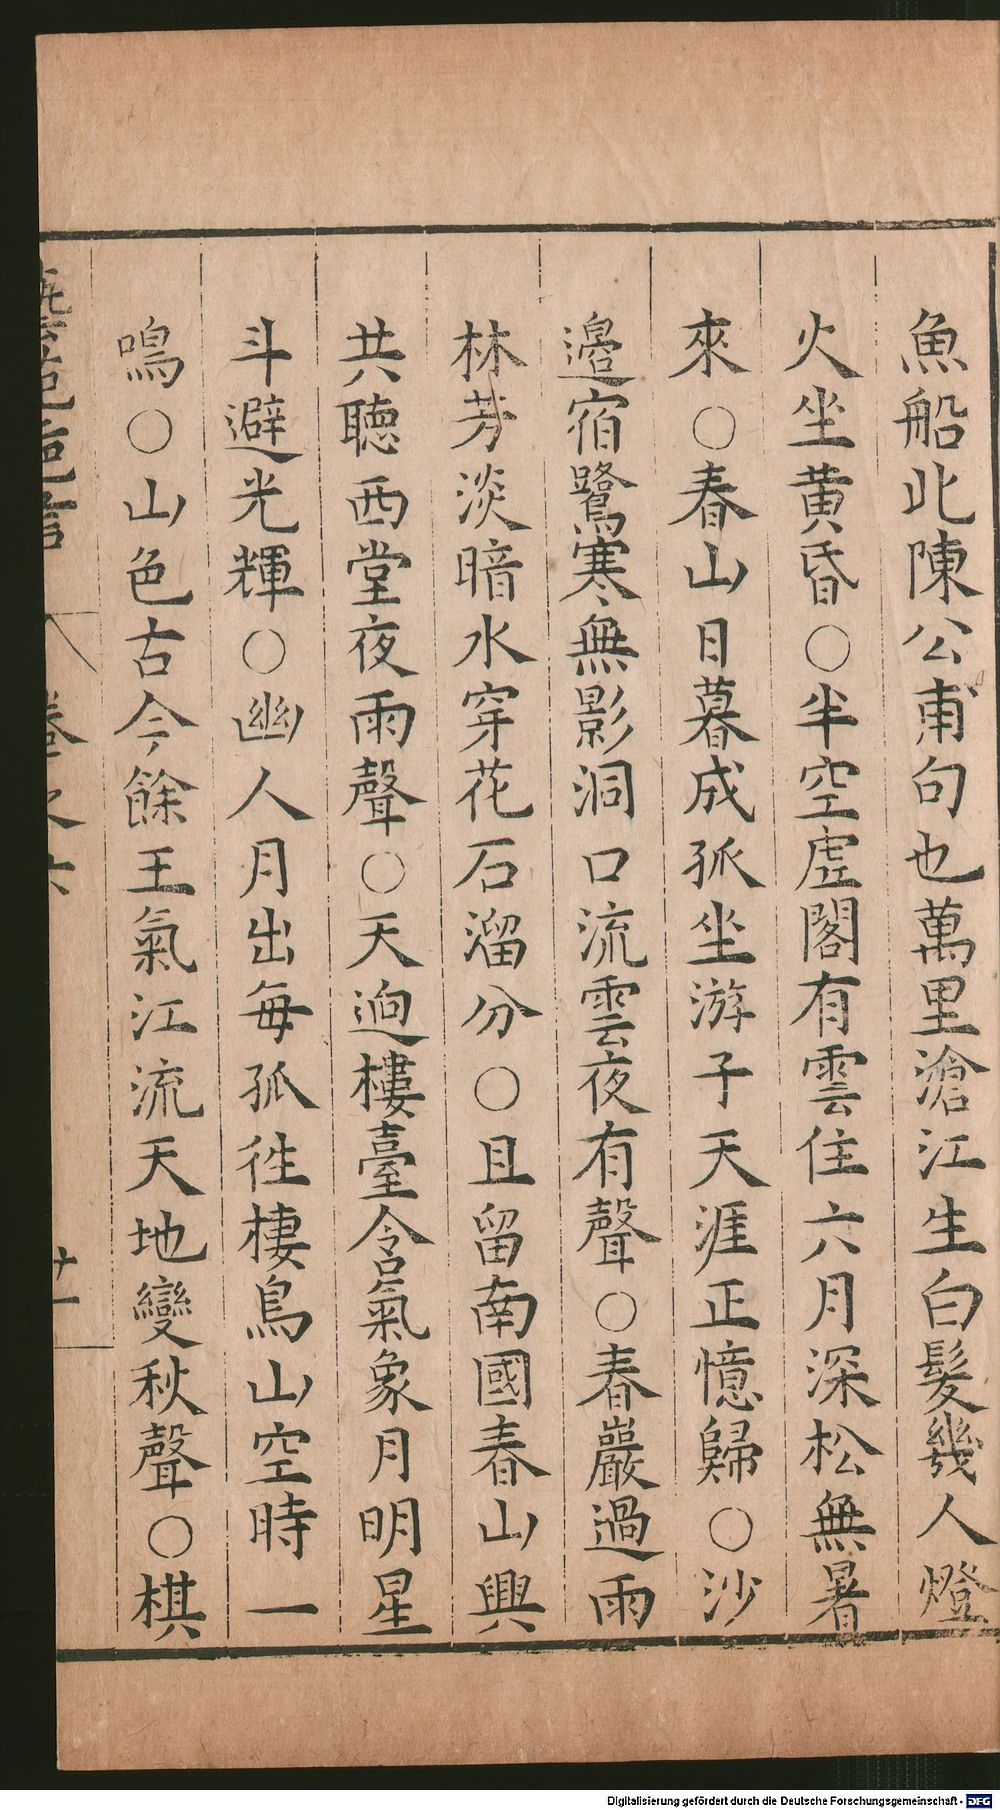 魚船北陳公甫句也萬里滄江生白髮幾人燈
火坐黄昏○半空虛閣有雲住六月深松無暑
來○春山日暮成孤坐游子天涯正憶歸○沙
邉宿鷺寒無影洞口流雲夜有聲○春巖過雨
林芳淡暗水穿花石溜分○且留南國春山興
共聽西堂夜雨聲○天逈樓臺含氣象月明星
斗避光輝○幽人月出每孤徃棲鳥山空時一
鳴○山色古今餘王氣江流天地變秋聲○棋
藝苑巵言 卷之六 廿一
Digitalisierung gefördert durch die Deutsche Forschungsgemeinschaft - DFG